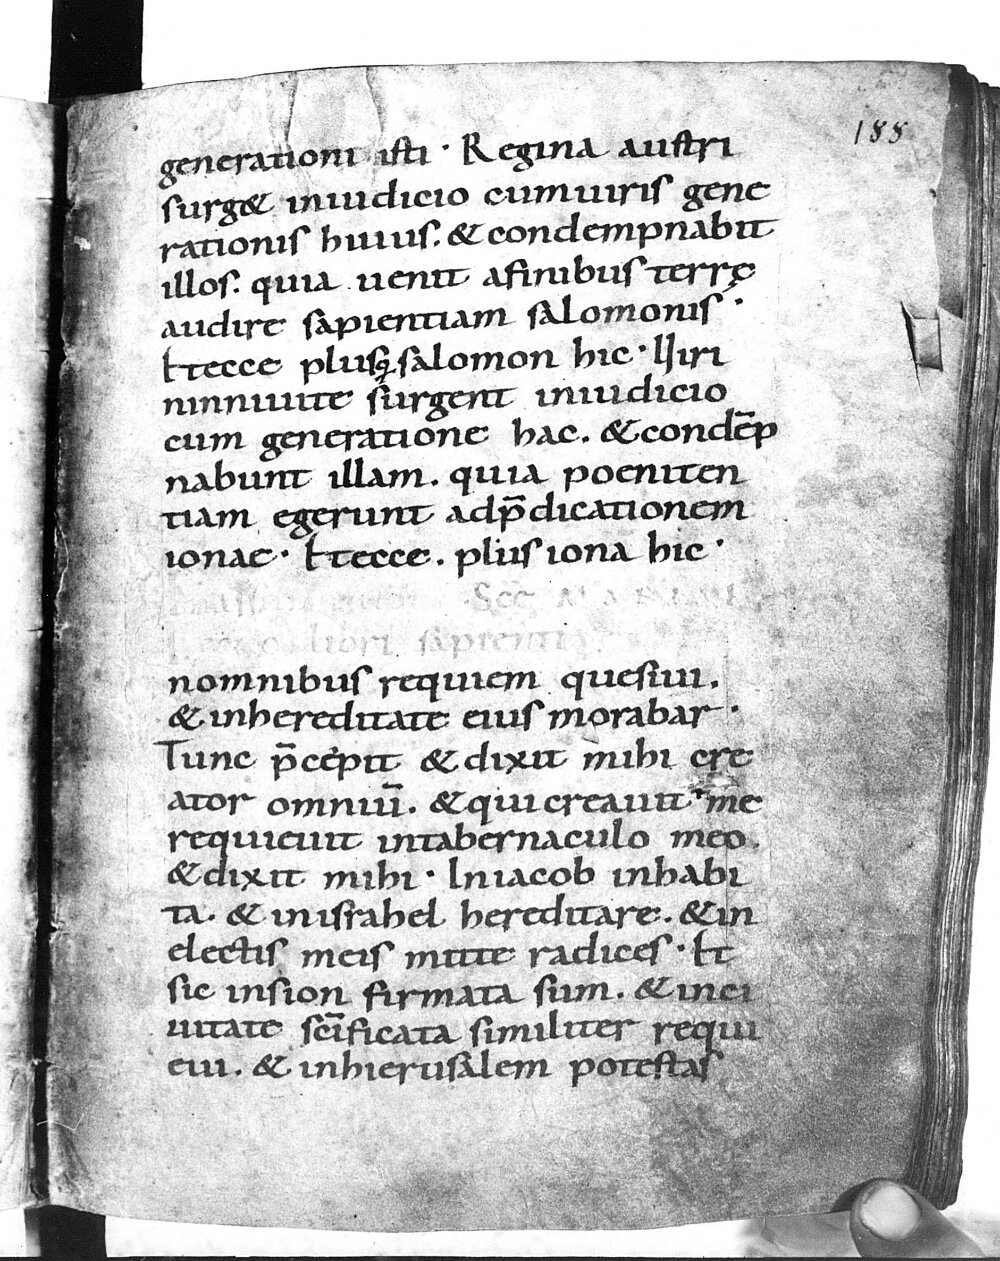 188
generationi isti · Regina austri
surg& iniudicio cumuiris gene
rationis huius. & condempnabit
illos. quia uenit afinibus terrę
audire sapientiam salomonis ·
Etecce plusq; salomon hic · Uiri
ninniuite surgent iniudicio
cum generatione hac. & condēp
nabunt illam. quia poeniten
tiam egerunt adp̄dicationem
ionae · Etecce. plus iona hic ·
libri sapientię
nomnibus requiem quesiui.
& inhereditate eius morabar ·
Tunc p̄cepit & dixit mihi cre
ator omniū. & qui creauit me
requieuit intabernaculo meo.
& dixit mihi · Iniacob inhabi
ta. & inisrahel hereditare. & in
electis meis mitte radices · Et
sic insion firmata sum. & inci
uitate sc̄ificata similiter requi
eui. & inhierusalem potestas